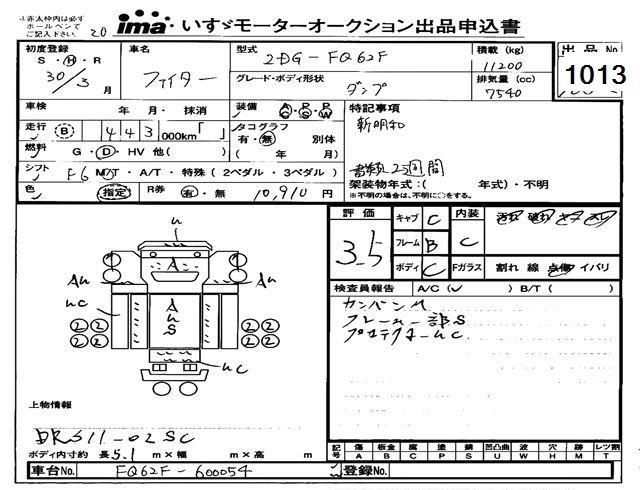 ※赤太枠内は必ず
ホールペンで
ご記入下さい。
20
ima いすゞモーターオークション出品申込書
初度登録 車名 型式 積載(kg) 出品No
S・H・R 30/3月 ファイター 2DG-FQ62F 11200 1013
グレード・ボディ形状 ダンプ 排気量(cc) 7540
車検 年 月・抹消 装備 A/C P/S P/W 特記事項
走行 (B) 443 000km「 」 タコグラフ 有・無 別体 新明和
燃料 G・D・HV 他( ) ( 年 月) 書類2週間
シフト F6 M/T・A/T・特殊(2ペダル・3ペダル) 架装物年式:( 年式)・不明
※不明の場合は、不明に○をする。
色 指定 R券 有・無 10,910円
評価 3.5 キャブ C 内装 C
フレーム B
ボディ C Fガラス 割れ 線 点傷 イバリ
検査員報告 A/C(レ) B/T( )
カンバンU
フレーム一部S
プロテクターUC
U
A
AU AU
UC
A
U
S
UC
2 2 2 2
2 2 2 2
上物情報
DRS11-02SC
ボディ内寸約 長5.1m×幅 m×高 m
記号 傷A 板金B 腐C 塗P 錆S 凹凸曲U 波W 穴H 跡M レツ割T
車台No. FQ62F-600054 登録No.